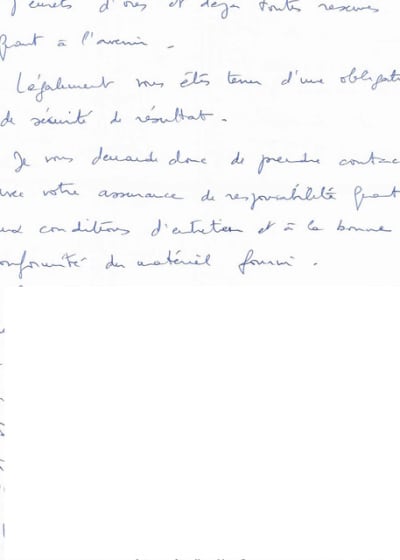 J'émets d'ores et déjà toutes réserves
quant à l'avenir.
Légalement vous êtes tenu d'une obligati
de sécurité de résultat.
Je vous demande donc de prendre contac
avec votre assurance de responsabilité quant
aux conditions d'entretien et à la bonne
onformité du matériel fourni.